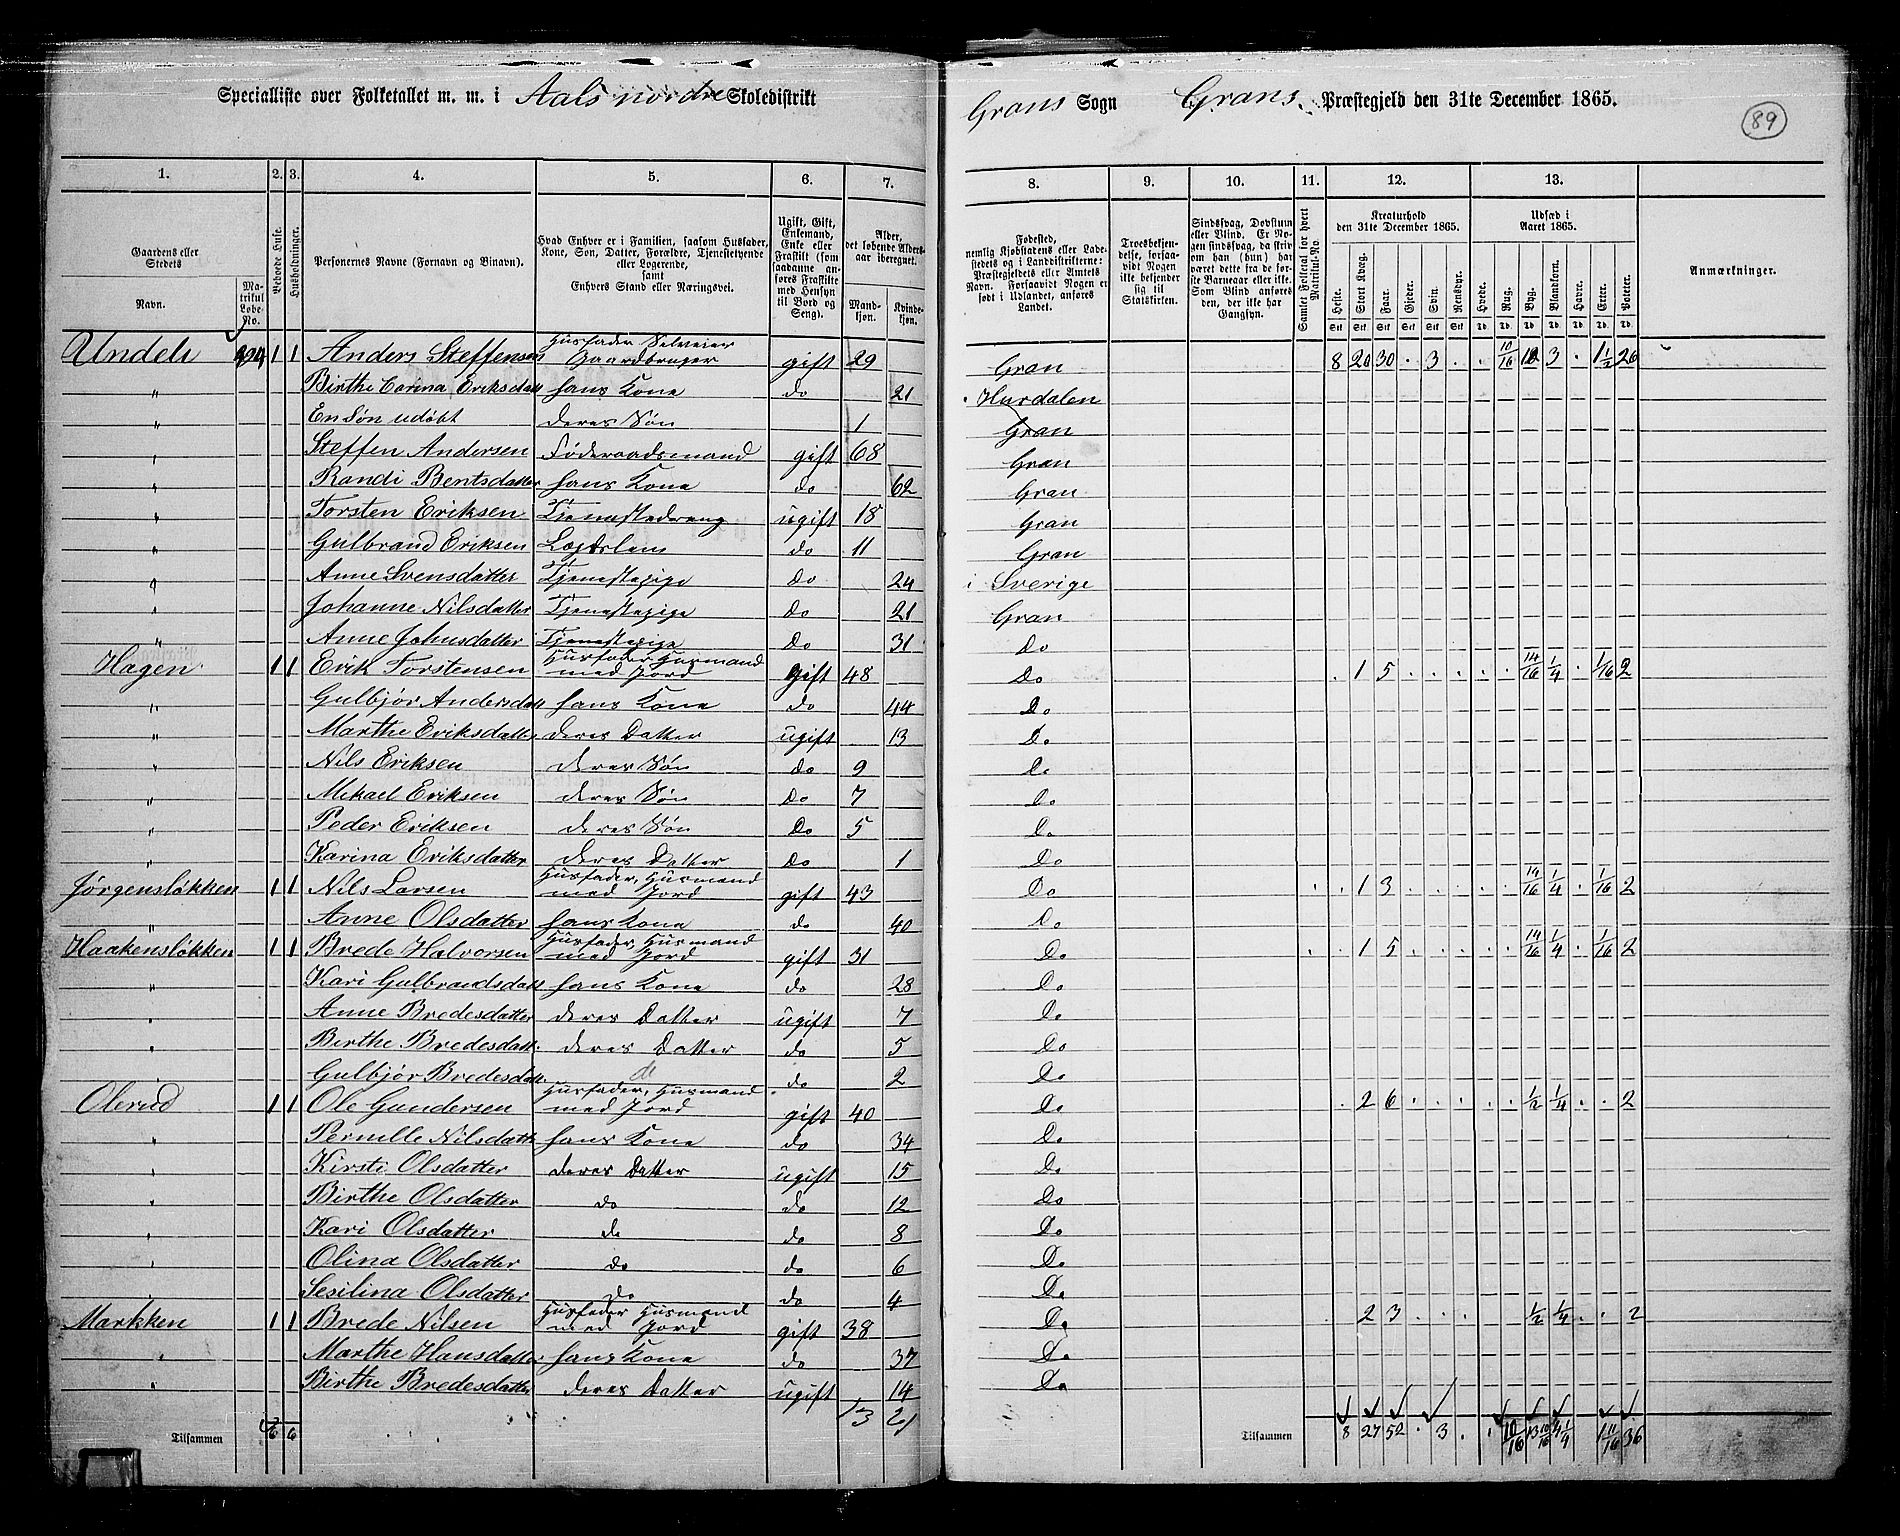 Specialliste over Folketallet m. m. i Aals nordre Skoledistrikt Grans Sogn Grans Præstegjeld den 31te December 1865.
89
1. 2. 3. 4. 5. 6. 7. 8. 9. 10. 11. 12. 13.
Gaardens eller Stedets
Navn.
Matrikul Løbe-No.
Beboede Huse.
Husholdninger.
Personernes Navne (Fornavn og Binavn).
Hvad Enhver er i Familien, saasom Husfader, Kone, Søn, Datter, Forældre, Tjenestetyende eller Logerende, samt Enhvers Stand eller Næringsvei.
Ugift, Gift, Enkemand, Enke eller Fraskilt (som saadanne anføres Fraskilte med Hensyn til Bord og Seng).
Alder, det løbende Aldersaar iberegnet.
Mandkjøn.
Kvindekjøn.
Fødested, nemlig Kjøbstadens eller Ladestedets og i Landdistrikterne: Præstegjeldets eller Amtets Navn. Forsaavidt Nogen er født i Udlandet, anføres Landet.
Troesbekjendelse, forsaavidt Nogen ikke bekjender sig til Statskirken.
Sindssvag, Døvstum eller Blind. Er Nogen sindssvag, da skrives om han (hun) har været dette fra de første Barneaar eller ikke. Som Blind anføres den, der ikke har Gangsyn.
Samlet Folketal for hvert Matrikul-No.
Kreaturhold den 31te December 1865.
Heste. Stort Kvæg. Faar. Gjeder. Svin. Rensdyr.
Udsæd i Aaret 1865.
Hvede. Rug. Byg. Blandkorn. Havre. Erter. Poteter.
Anmærkninger.
Undeli 1 1 Anders Steffensen Husfader Selveier Gaardbruger gift 29 Gran 8 20 30 . 3 . . 10/16 3 . 1 1/2 26
" Birthe Carina Eriksdatt hans Kone do 21 Hurdalen
" En Søn udøbt deres Søn 1 Gran
" Steffen Andersen Føderaadsmand gift 68 Gran
" Randi Bentsdatter hans Kone do 62 Gran
" Torsten Eriksen Tjenestedreng ugift 18 Gran
" Gulbrand Eriksen Lægdslem do 11 Gran
" Anne Svensdatter Tjenestepige do 24 i Sverige
" Johanne Nilsdatter Tjenestepige do 21 Gran
" Anne Johnsdatter Tjenestepige do 31 Do
Hagen 1 1 Erik Torstensen Husfader Husmand med Jord gift 48 Do . 1 5 . . . . . 14/16 1/4 . 1/16 2
" Gulbjør Andersdatt hans Kone do 44 Do
" Marthe Eriksdatter deres Datter ugift 13 Do
" Nils Eriksen deres Søn do 9 Do
" Mikael Eriksen deres Søn do 7 Do
" Peder Eriksen deres Søn do 5 Do
" Karina Eriksdatter deres Datter do 1 Do
Jørgensløkken 1 1 Nils Larsen Husfader, Husmand med Jord gift 43 Do . . 1 3 . . . . . 14/16 1/4 . 1/16 2
" Anne Olsdatter hans Kone do 40 Do
Haakensløkken 1 1 Brede Halvorsen Husfader, Husmand med Jord gift 31 Do . . 1 5 . . . . . 14/16 1/4 . 1/16 2
" Kari Gulbrandsdatt hans Kone do 28 Do
" Anne Bredesdatter deres Datter ugift 7 Do
" Birthe Bredesdatt. deres Datter do 5 Do
" Gulbjør Bredesdatt. do do 2 Do
Olerud 1 1 Ole Gundersen Husfader, Husmand med Jord gift 40 Do . 2 6 . . . . . 1/2 1/4 . . 2
" Pernille Nilsdatt. hans Kone do 34 Do
" Kirsti Olsdatter deres Datter ugift 15 Do
" Birthe Olsdatter do do 12 Do
" Kari Olsdatter do do 8 Do
" Olina Olsdatter do do 6 Do
Sesilina Olsdatter do do 4 Do
Markken 1 1 Brede Nilsen Husfader Husmand med Jord gift 38 Do . 2 3 . . . 1/2 1/4 . . 2
" Marthe Hansdatter hans Kone do 37 Do
" Birthe Bredesdatter deres Datter ugift 14 Do
Tilsammen 6 6 13 21 Tilsammen 8 27 52 . 3 . . 10/16 13 10/16 4 1/4 1 11/16 36